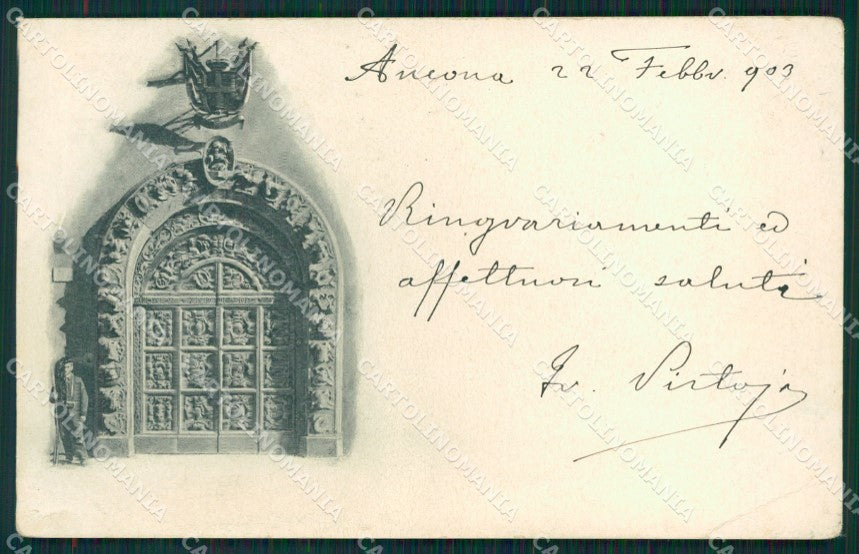 Ancona 22 Febbr. 903
Ringraziamenti ed
affettuosi saluti
CARTOLINOMANIA